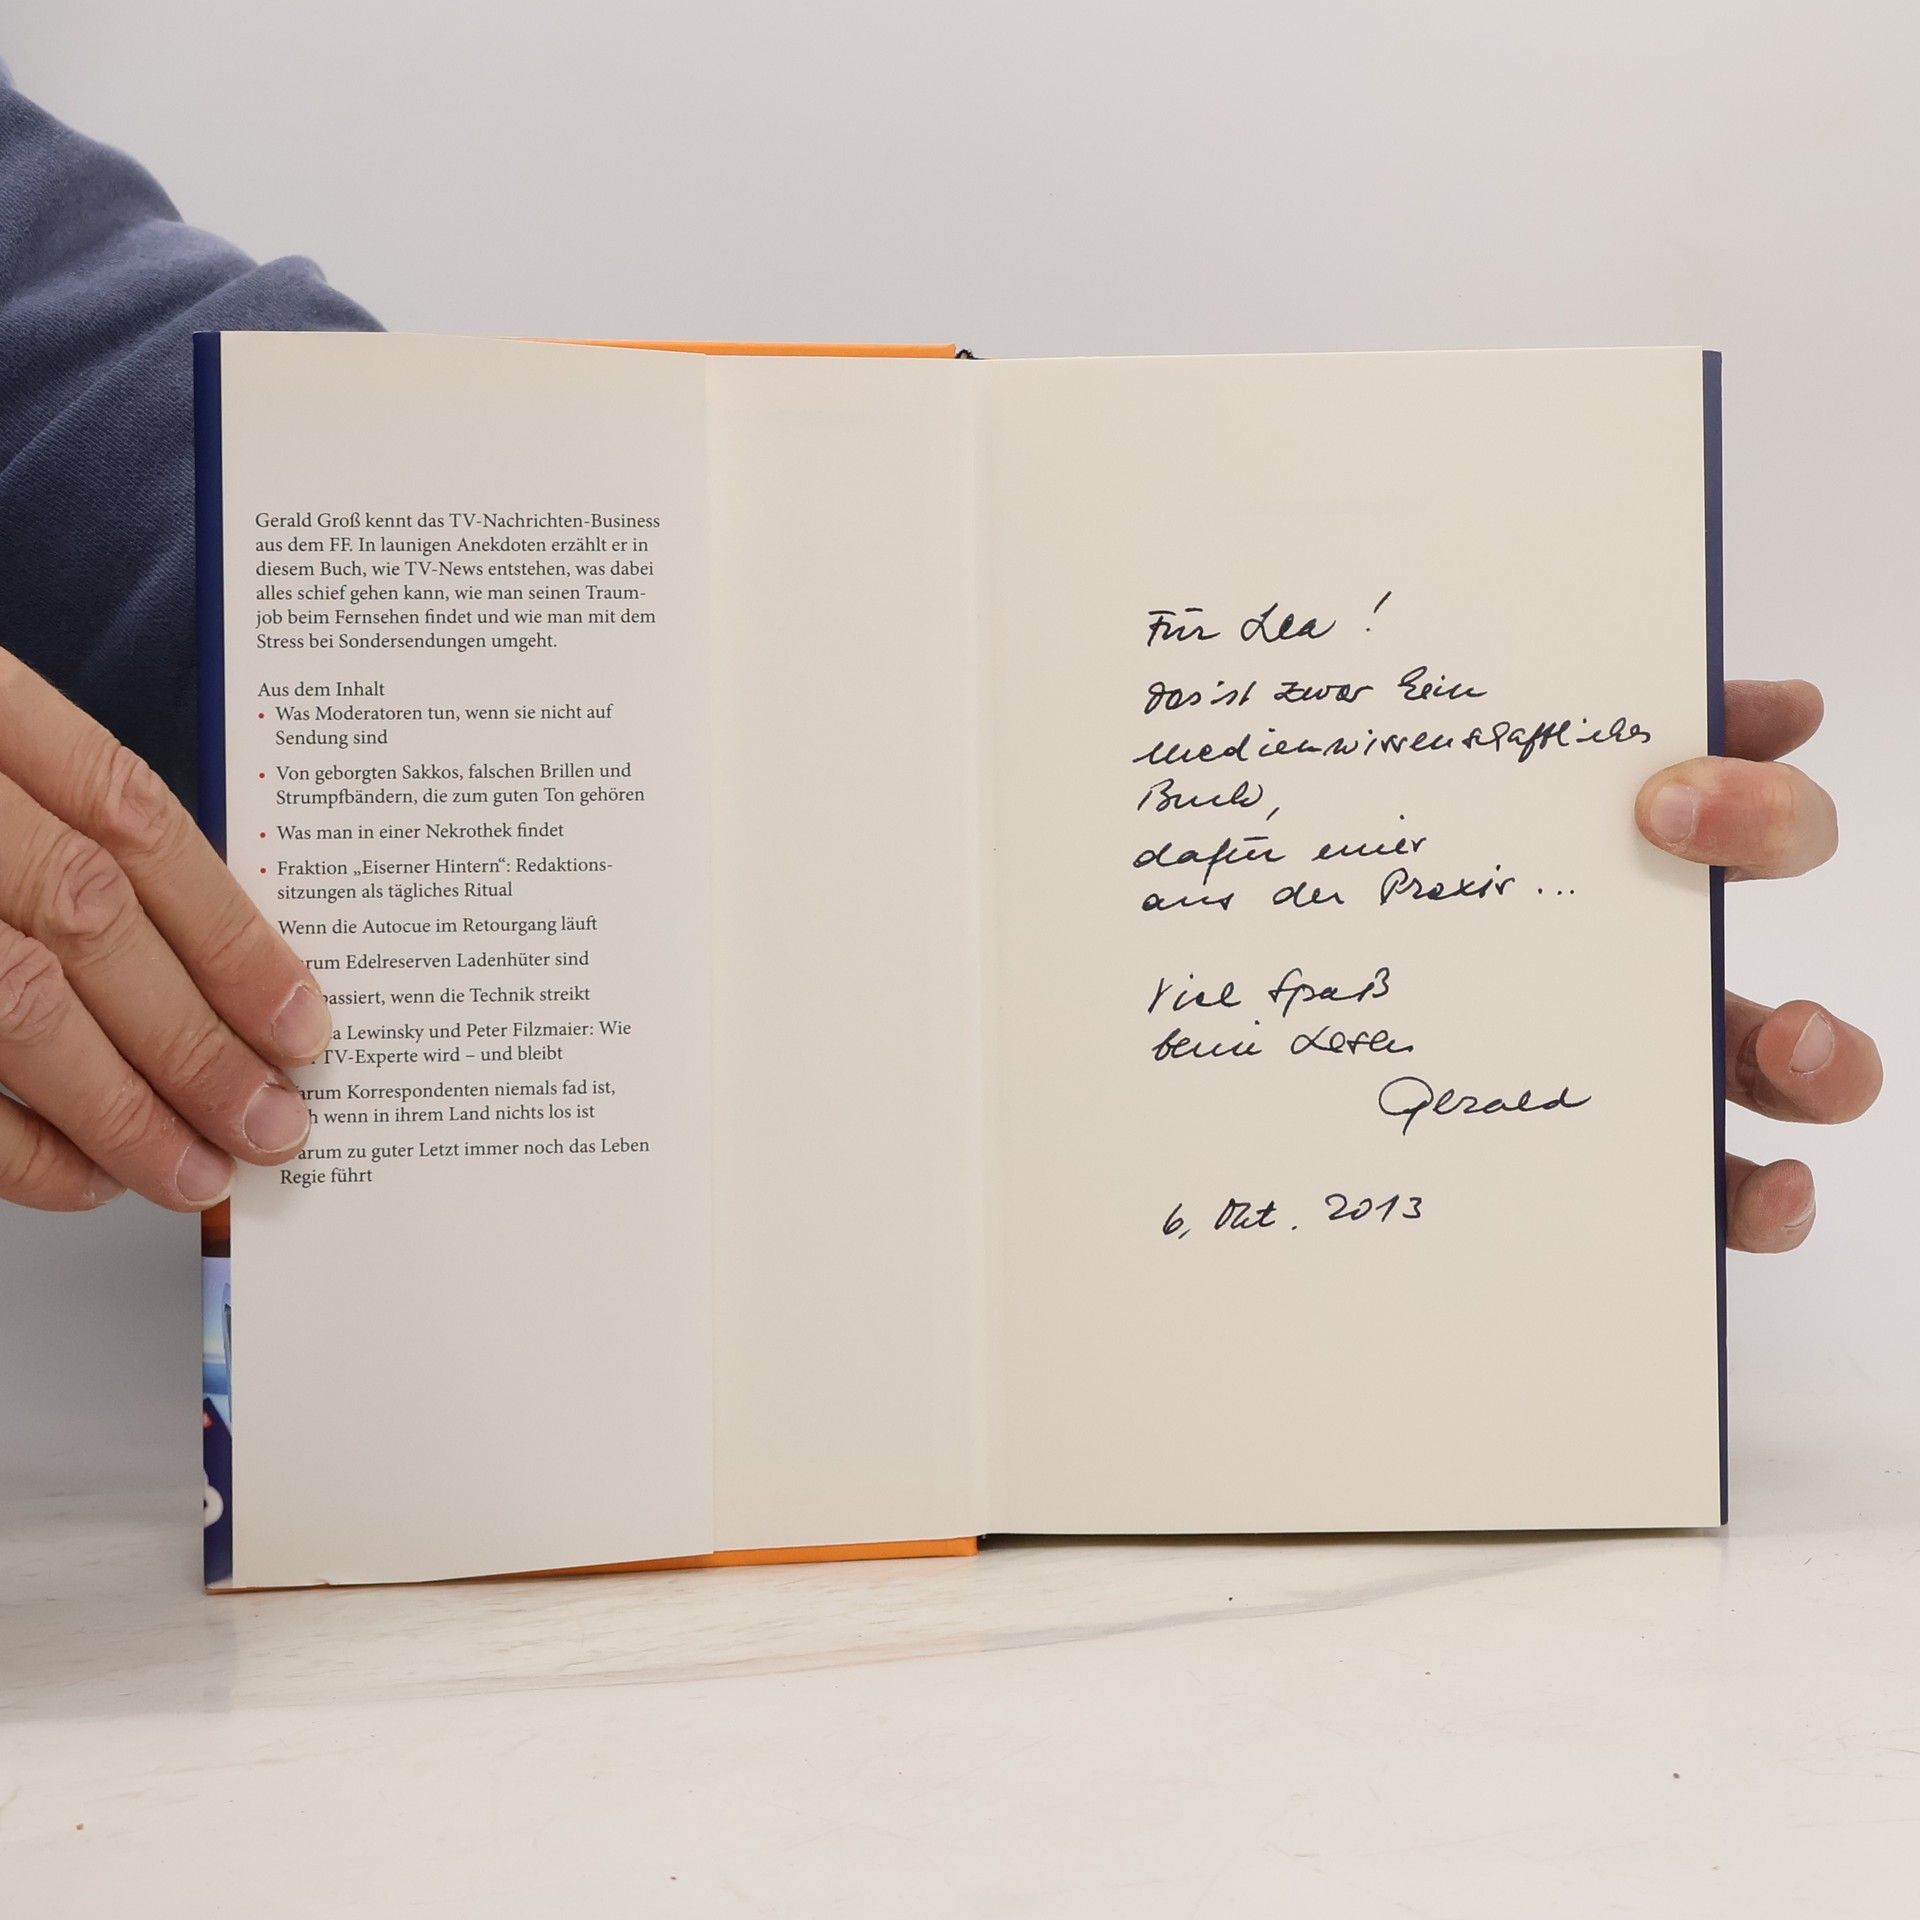 Gerald Groß kennt das TV-Nachrichten-Business
aus dem FF. In launigen Anekdoten erzählt er in
diesem Buch, wie TV-News entstehen, was dabei
alles schief gehen kann, wie man seinen Traum-
job beim Fernsehen findet und wie man mit dem
Stress bei Sondersendungen umgeht.
Aus dem Inhalt
• Was Moderatoren tun, wenn sie nicht auf
Sendung sind
• Von geborgten Sakkos, falschen Brillen und
Strumpfbändern, die zum guten Ton gehören
• Was man in einer Nekrothek findet
• Fraktion „Eiserner Hintern“: Redaktions-
sitzungen als tägliches Ritual
Wenn die Autocue im Retourgang läuft
Edelreserven Ladenhüter sind
passiert, wenn die Technik streikt
Lewinsky und Peter Filzmaier: Wie
TV-Experte wird – und bleibt
Korrespondenten niemals fad ist,
wenn in ihrem Land nichts los ist
zu guter Letzt immer noch das Leben
Regie führt
Für Lea!
Das ist zwar kein
medienwissenschaftliches
Buch,
dafür eines
aus der Praxis ...
Viel Spaß
beim Lesen
Gerald
6. Okt. 2013